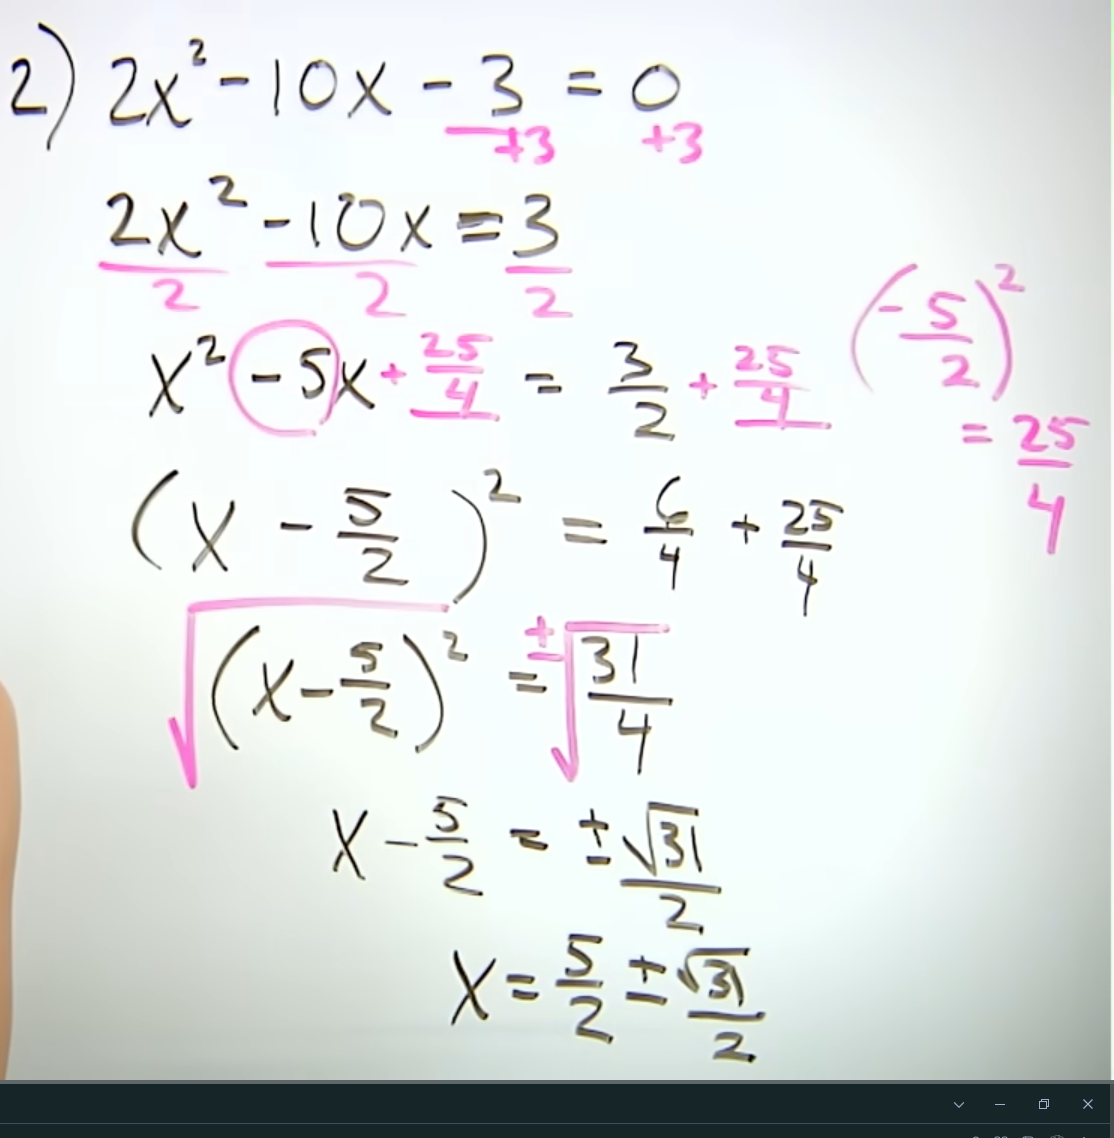 2) 2x² - 10x - 3 = 0
+3 +3
2x² - 10x = 3
2 2 2
x² - 5x + 25/4 = 3/2 + 25/4
(-5/2)²
= 25/4
(x - 5/2)² = 6/4 + 25/4
√(x - 5/2)² = ±√31/4
x - 5/2 = ± √31/2
x = 5/2 ± √31/2